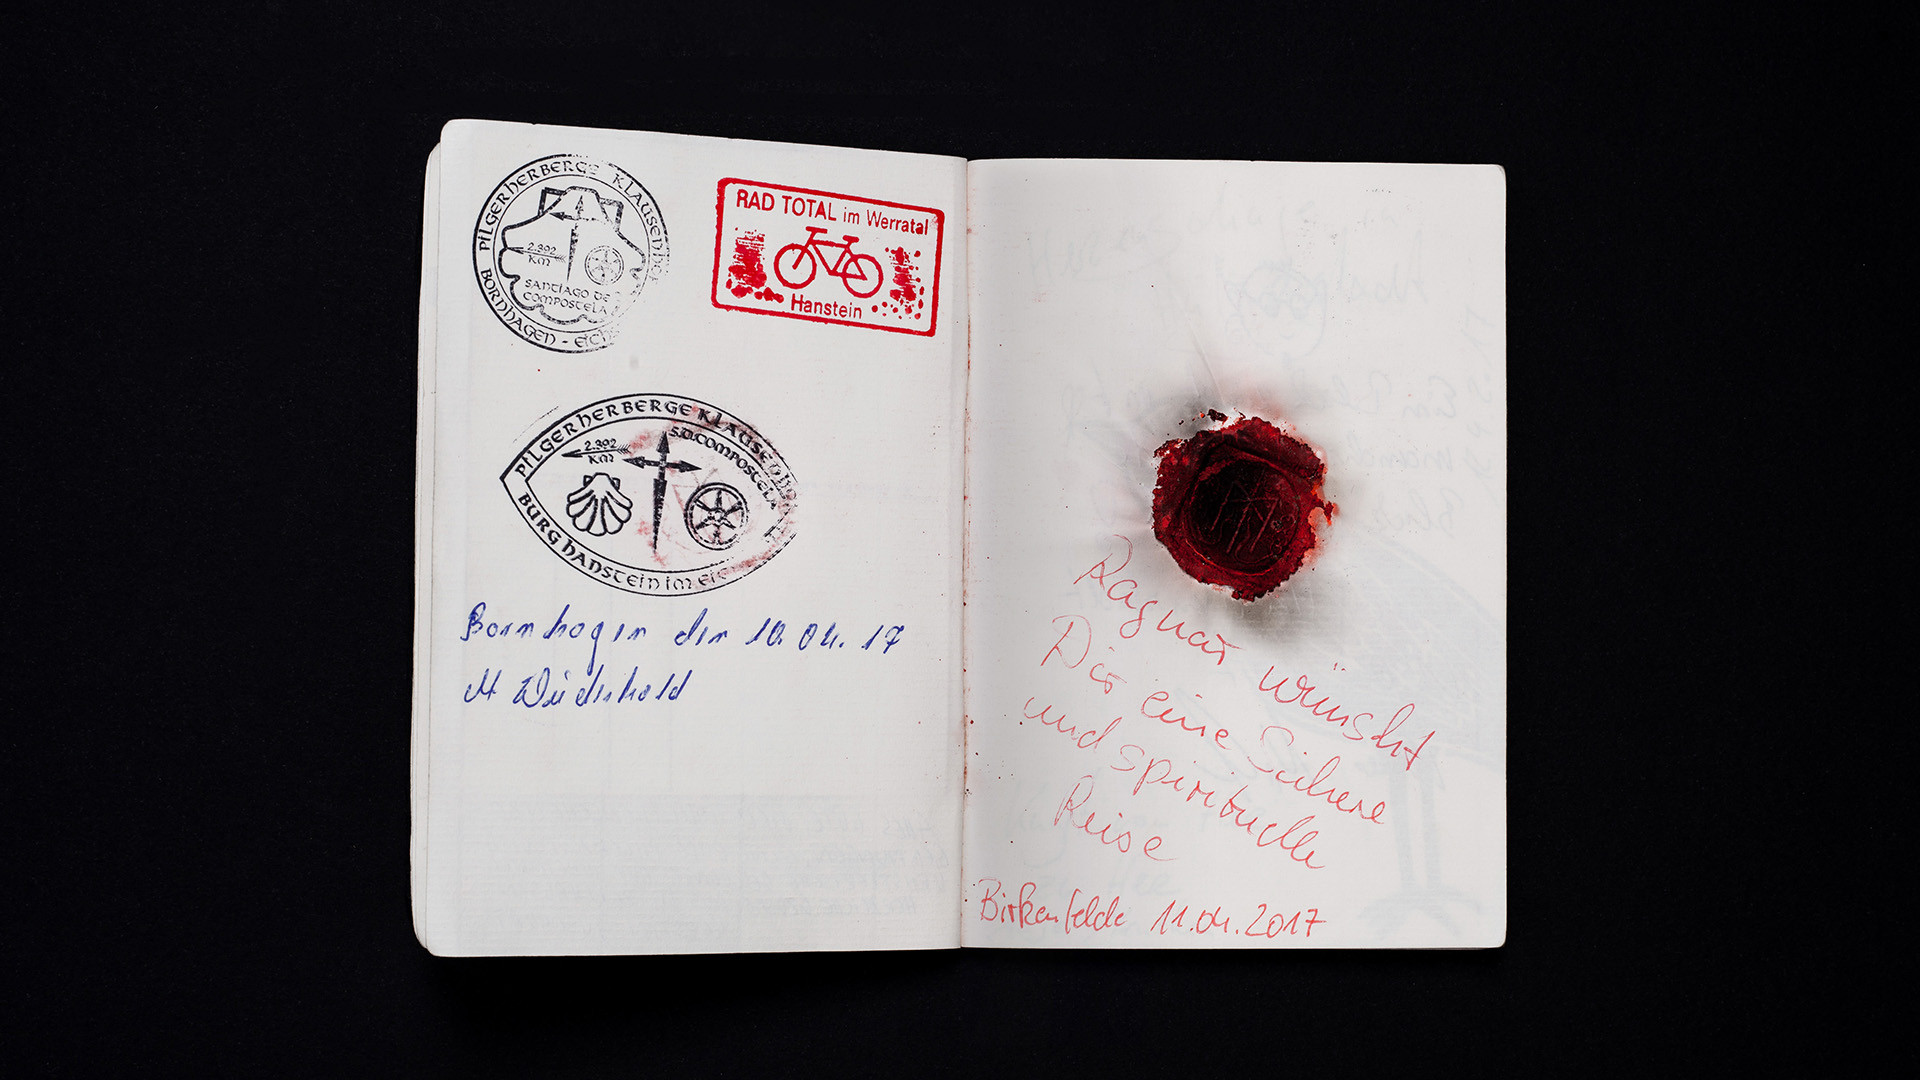 PILGERHERBERGE KLAUSENHOF
2.392
KM
SANTIAGO DE
COMPOSTELA
BORNHAGEN - EICHS
RAD TOTAL im Werratal
Hanstein
PILGERHERBERGE KLAUSENHOF
2.392
KM
S.D.COMPOSTELA
BURG HANSTEIN IM EIC
Bornhagen den 10.04.17
M
Ragnar wünscht
Dir eine Sichere
und spirituelle
Reise
Birkenfelde 11.04.2017